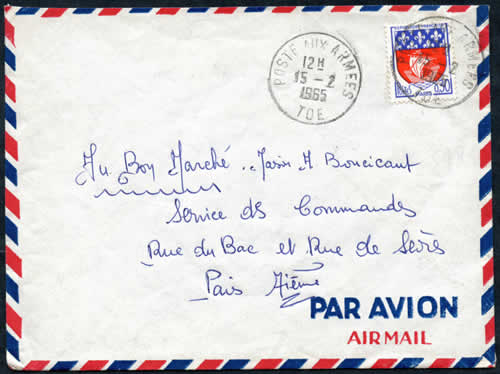 POSTE AUX ARMEES
12H
15-2
1965
TOE
0,30
Au Bon Marché. Maison A Boucicaut
Service des Commandes
Rue du Bac et Rue de Sèvres
Paris 7ième
PAR AVION
AIR MAIL